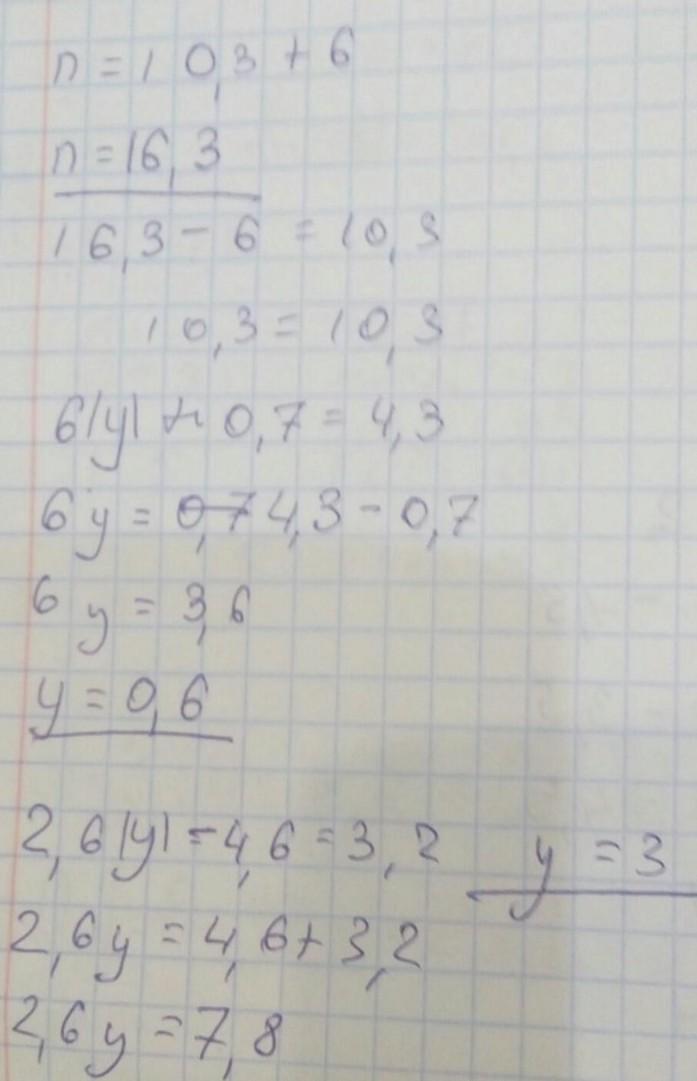 n = 10,3 + 6
n = 16,3
16,3 - 6 = 10,3
10,3 = 10,3
6|y| + 0,7 = 4,3
6y = 0,7 4,3 - 0,7
6y = 3,6
y = 0,6
2,6|y| - 4,6 = 3,2
y = 3
2,6y = 4,6 + 3,2
2,6y = 7,8